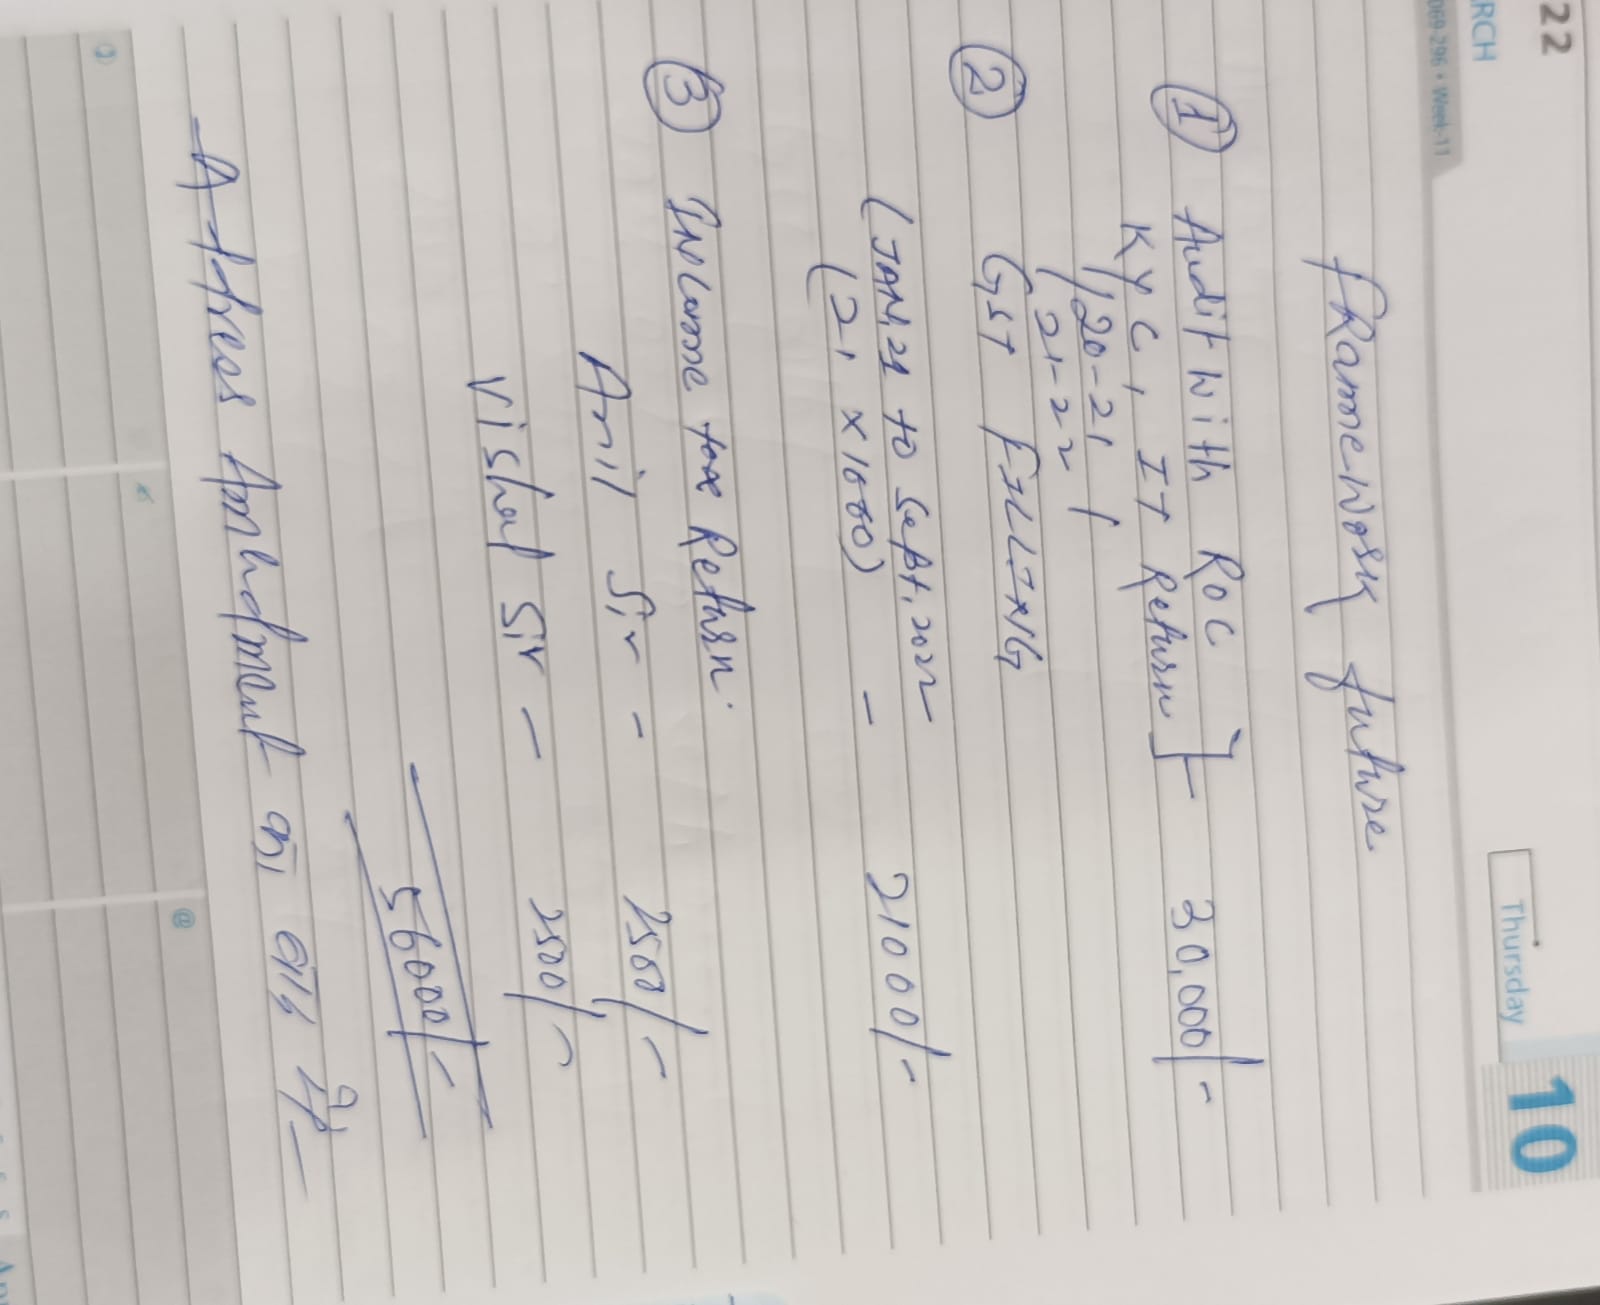 22
RCH
Thursday
10
069-296 • Week-11
Framework future
① Audit With ROC
KYC, IT Return
30,000/-
20-21
21-22
② GST FILLING
(JAN, 21 to Sept, 2022
(21 × 1000) - 21000/-
③ INCome tax Return.
Anil Sir - 2500/-
Vishal Sir - 2500/-
56000/-
Address Amendment का बाद में
@